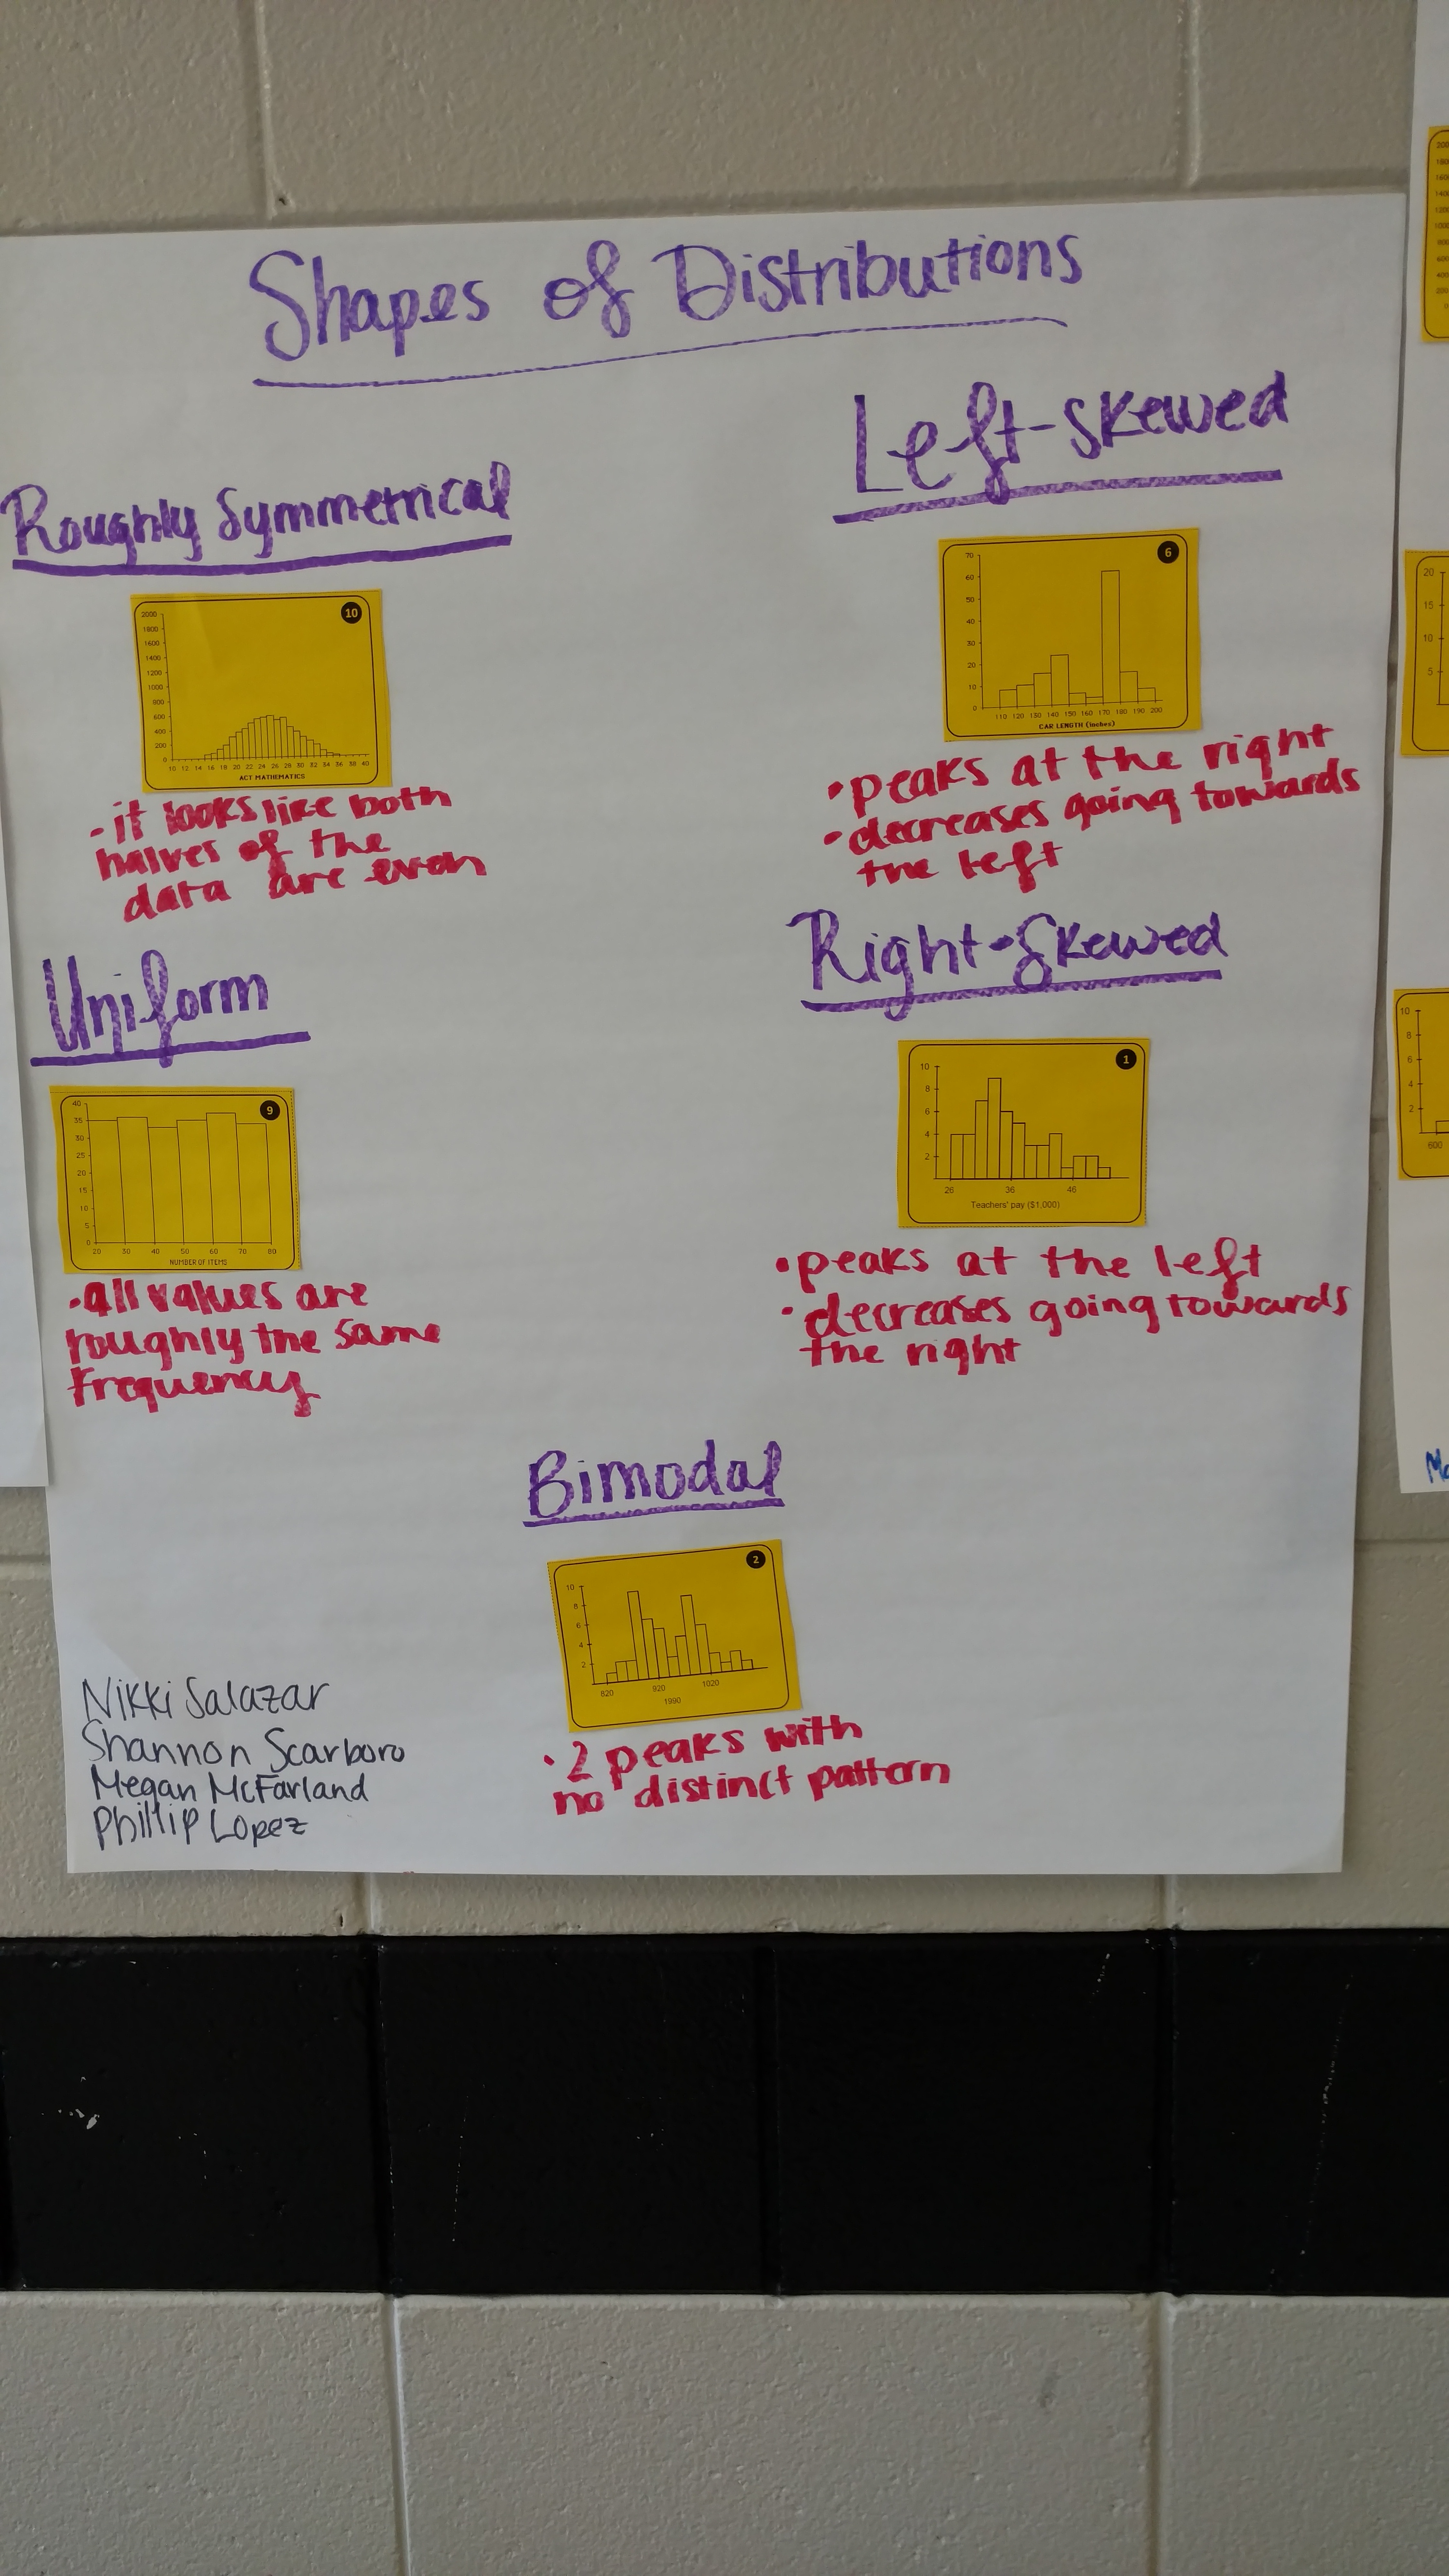 Shapes of Distributions
Roughly Symmetrical
10
2000
1800
1600
1400
1200
1000
800
600
400
200
0
10 12 14 16 18 20 22 24 26 28 30 32 34 36 38 40
ACT MATHEMATICS
- it looks like both
halves of the
data are even
Left-skewed
6
70
60
50
40
30
20
10
0
110 120 130 140 150 160 170 180 190 200
CAR LENGTH (inches)
• peaks at the right
• decreases going towards
the left
Uniform
9
40
35
30
25
20
15
10
5
0
20 30 40 50 60 70 80
NUMBER OF ITEMS
• all values are
roughly the same
frequency
Right-Skewed
1
10
8
6
4
2
26 36 46
Teachers' pay ($1,000)
• peaks at the left
• decreases going towards
the right
Bimodal
2
10
8
6
4
2
820 920 1020
1990
• 2 peaks with
no distinct pattern
Nikki Salazar
Shannon Scarboro
Megan McFarland
Phillip Lopez
20
15
10
5
10
8
6
4
2
600